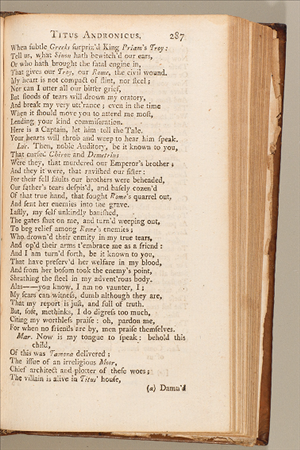 TITUS ANDRONICUS. 287
When subtle Greeks surpriz'd King Priam's Troy:
Tell us, what Sinon hath bewitch'd our ears,
Or who hath brought the fatal engine in,
That gives our Troy, our Rome, the civil wound.
My heart is not compact of flint, nor steel;
Nor can I utter all our bitter grief,
But floods of tears will drown my oratory,
And break my very utt'rance; even in the time
When it should move you to attend me most,
Lending your kind commiseration.
Here is a Captain, let him tell the Tale.
Your hearts will throb and weep to hear him speak.
Luc. Then, noble Auditory, be it known to you,
That cursed Chiron and Demetrius
Were they, that murdered our Emperor's brother;
And they it were, that ravished our sister:
For their fell faults our brothers were beheaded,
Our father's tears despis'd, and basely cozen'd
Of that true hand, that fought Rome's quarrel out,
And sent her enemies into the grave.
Lastly, my self unkindly banished,
The gates shut on me, and turn'd weeping out,
To beg relief among Rome's enemies;
Who drown'd their enmity in my true tears,
And op'd their arms t'embrace me as a friend:
And I am turn'd forth, be it known to you,
That have preserv'd her welfare in my blood,
And from her bosom took the enemy's point,
Sheathing the steel in my advent'rous body.
Alas——you know, I am no vaunter, I;
My scars can witness, dumb although they are,
That my report is just, and full of truth.
But, soft, methinks, I do digress too much,
Citing my worthless praise: oh, pardon me,
For when no friends are by, men praise themselves.
Mar. Now is my tongue to speak: behold this
child,
Of this was Tamora delivered;
The issue of an irreligious Moor,
Chief architect and plotter of these woes;
The villain is alive in Titus' house,
(a) Damn'd